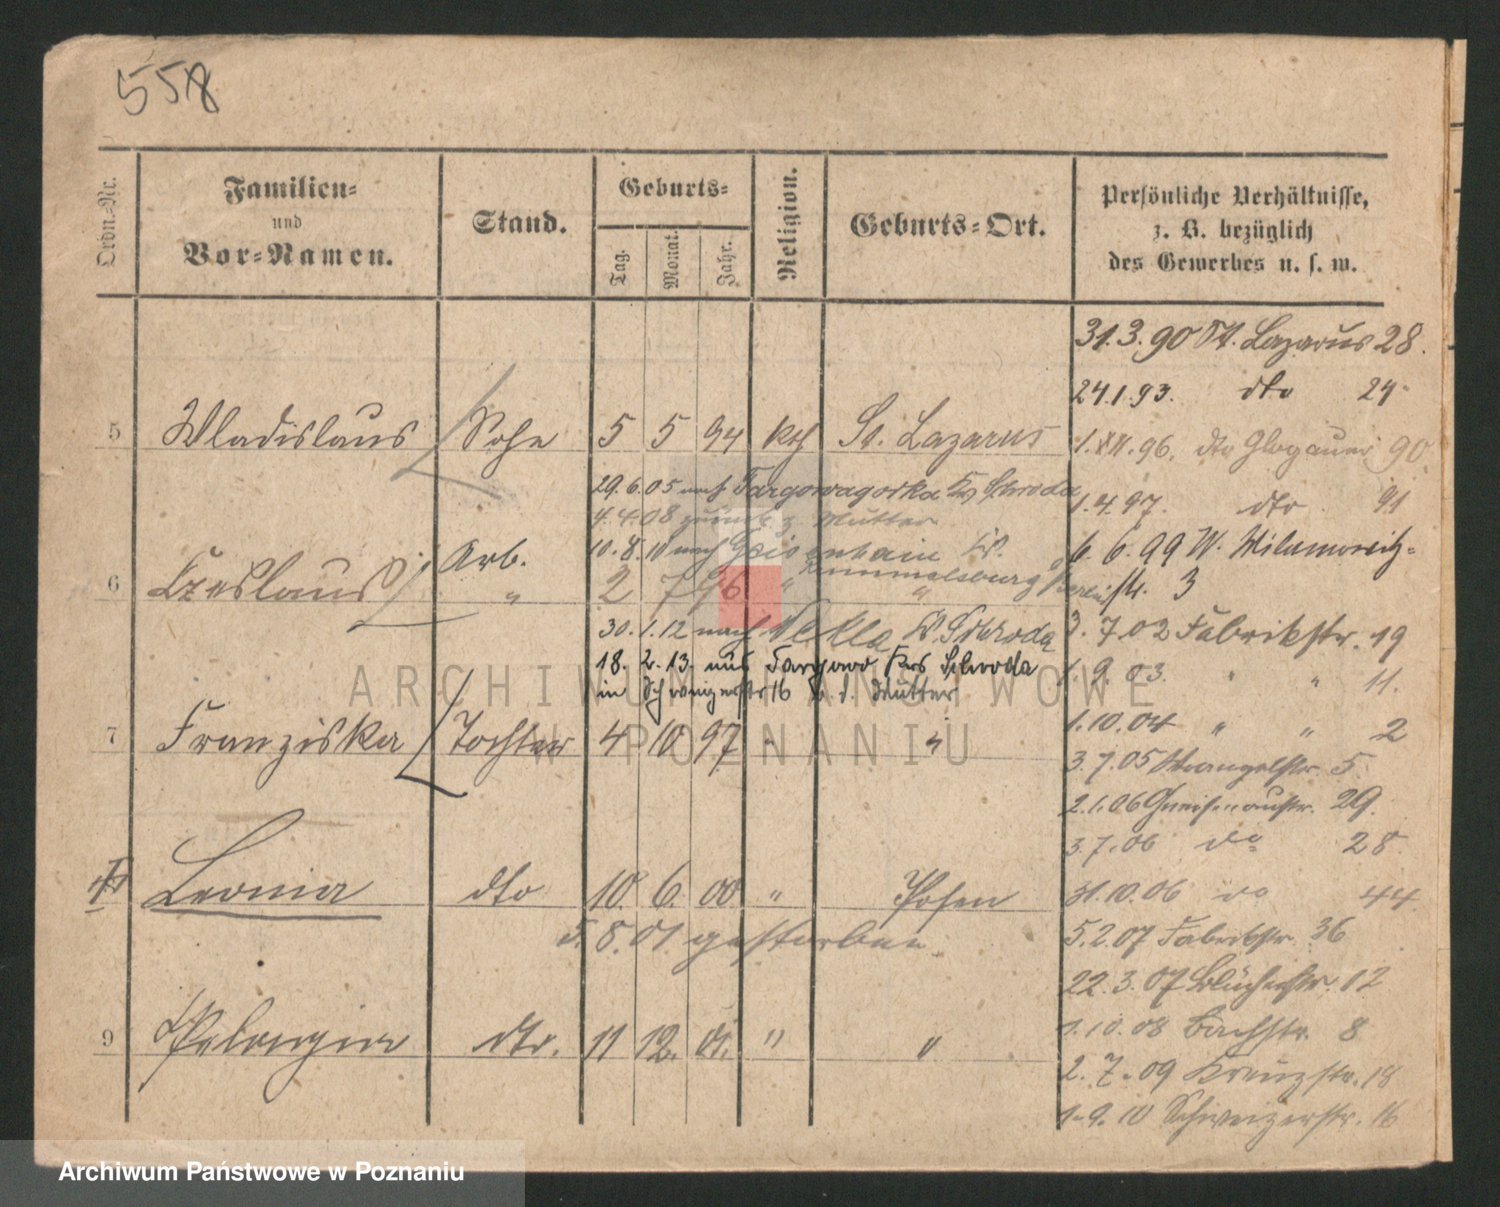 558
Ordn.-Nr.
Familien-
und
Vor-Namen.
Stand.
Geburts-
Tag.
Monat.
Jahr.
Religion.
Geburts-Ort.
Persönliche Verhältnisse,
z. B. bezüglich
des Gewerbes u. s. w.
31.3.90 St. Lazarus 28.
24.1.93. dto 24
5 Wladislaus Sohn 5 5 94 kth St. Lazarus
1.XII.96. dto Glogauer 90
29.6.05 nach Targowagorka Kr Schroda
1.4.97. dto. 91
4.4.08 zurück z. Mutter
10.8.10 nach
Kr.
Rummelsburg
6.6.99 W. Wilamowitz-
str. 3
6 Czeslaus Arb. " 2 7 96 " "
30.1.12 nach Nekla Kr. Schroda
3.7.02 Fabrikstr. 19
18. 2. 13. aus Targowo Krs Schroda
1.9.03. " " 11.
in Schweizerstr 16 b. d. Mutter
ARCHIWUM PAŃSTWOWE
W POZNANIU
7 Franziska Tochter 4 10 97 " "
1.10.04 " " 2
3.7.05 Wrangelstr. 5.
2.1.06 Gneisenaustr. 29.
3.7.06 do 28
Leonia dto 10. 6. 00 " Posen
31.10.06 do 44
5.8.01 gestorben.
5.2.07 Fabrikstr. 36
22.3.07 Blücherstr. 12
9 Pelagia dto. 11 12. 01. " "
1.10.08 Bachstr. 8
2.7.09 Kreuzstr. 18
1.9.10 Schweizerstr. 16
Archiwum Państwowe w Poznaniu